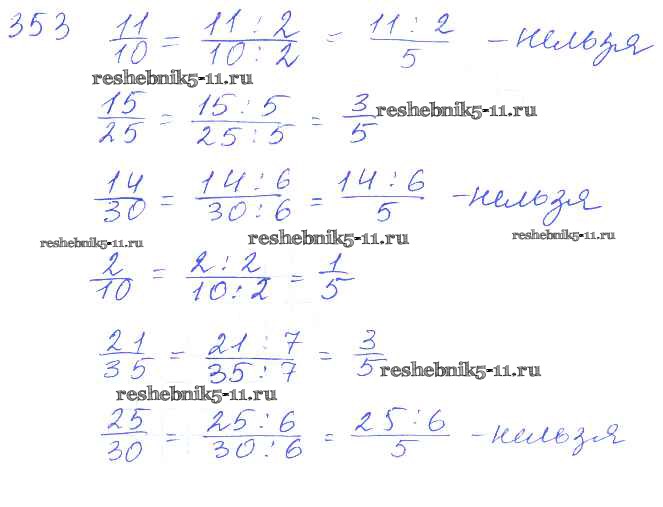 353 11/10 = 11 : 2/10 : 2 = 11 : 2/5 - нельзя
reshebnik5-11.ru
15/25 = 15 : 5/25 : 5 = 3/5 reshebnik5-11.ru
14/30 = 14 : 6/30 : 6 = 14 : 6/5 - нельзя
reshebnik5-11.ru reshebnik5-11.ru reshebnik5-11.ru
2/10 = 2 : 2/10 : 2 = 1/5
21/35 = 21 : 7/35 : 7 = 3/5 reshebnik5-11.ru
reshebnik5-11.ru
25/30 = 25 : 6/30 : 6 = 25 : 6/5 - нельзя